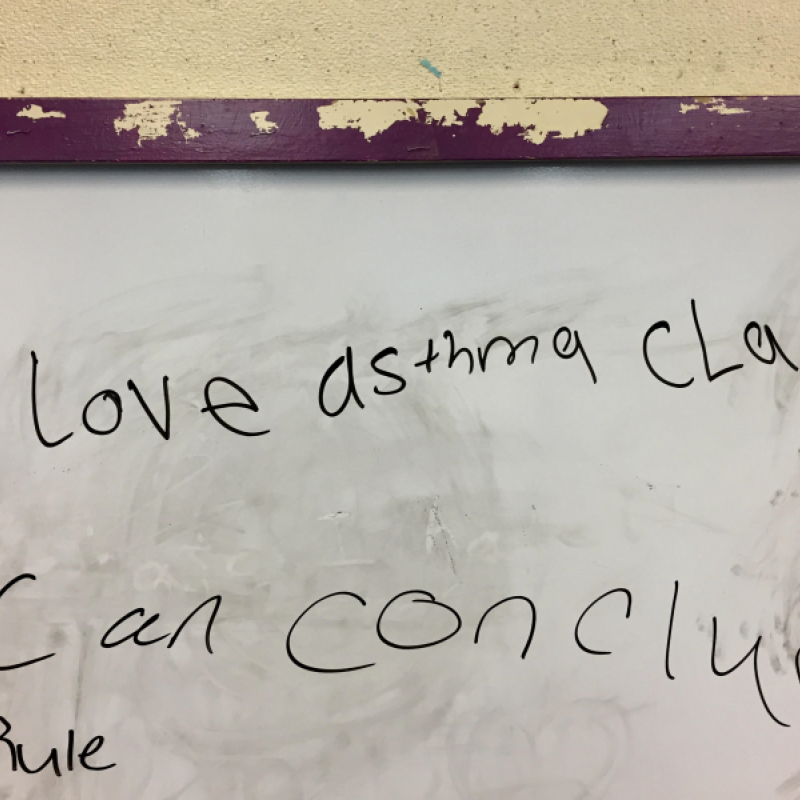 Love asthma CLa
Can conclu
Rule